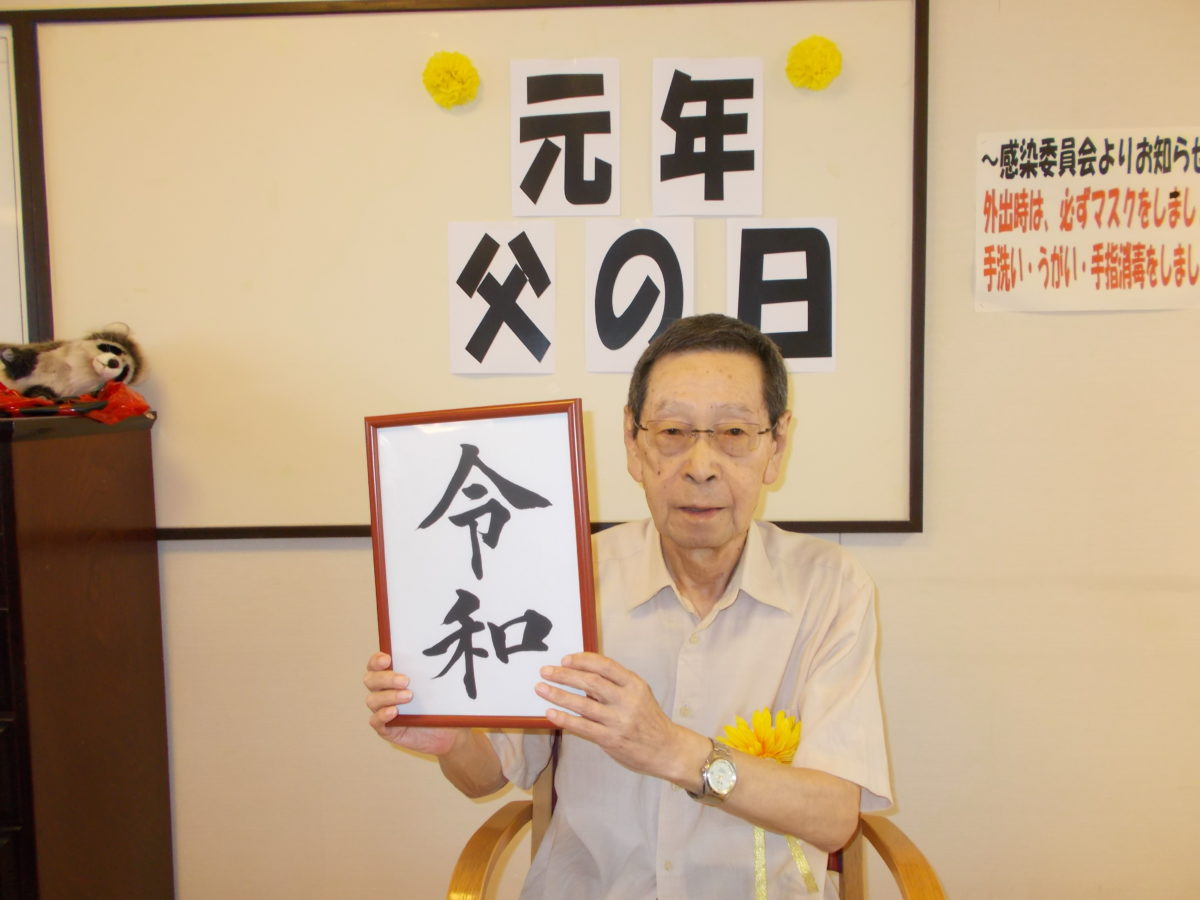 元年
父の日
令和
～感染委員会よりお知らせ
外出時は、必ずマスクをしまし
手洗い・うがい・手指消毒をしまし